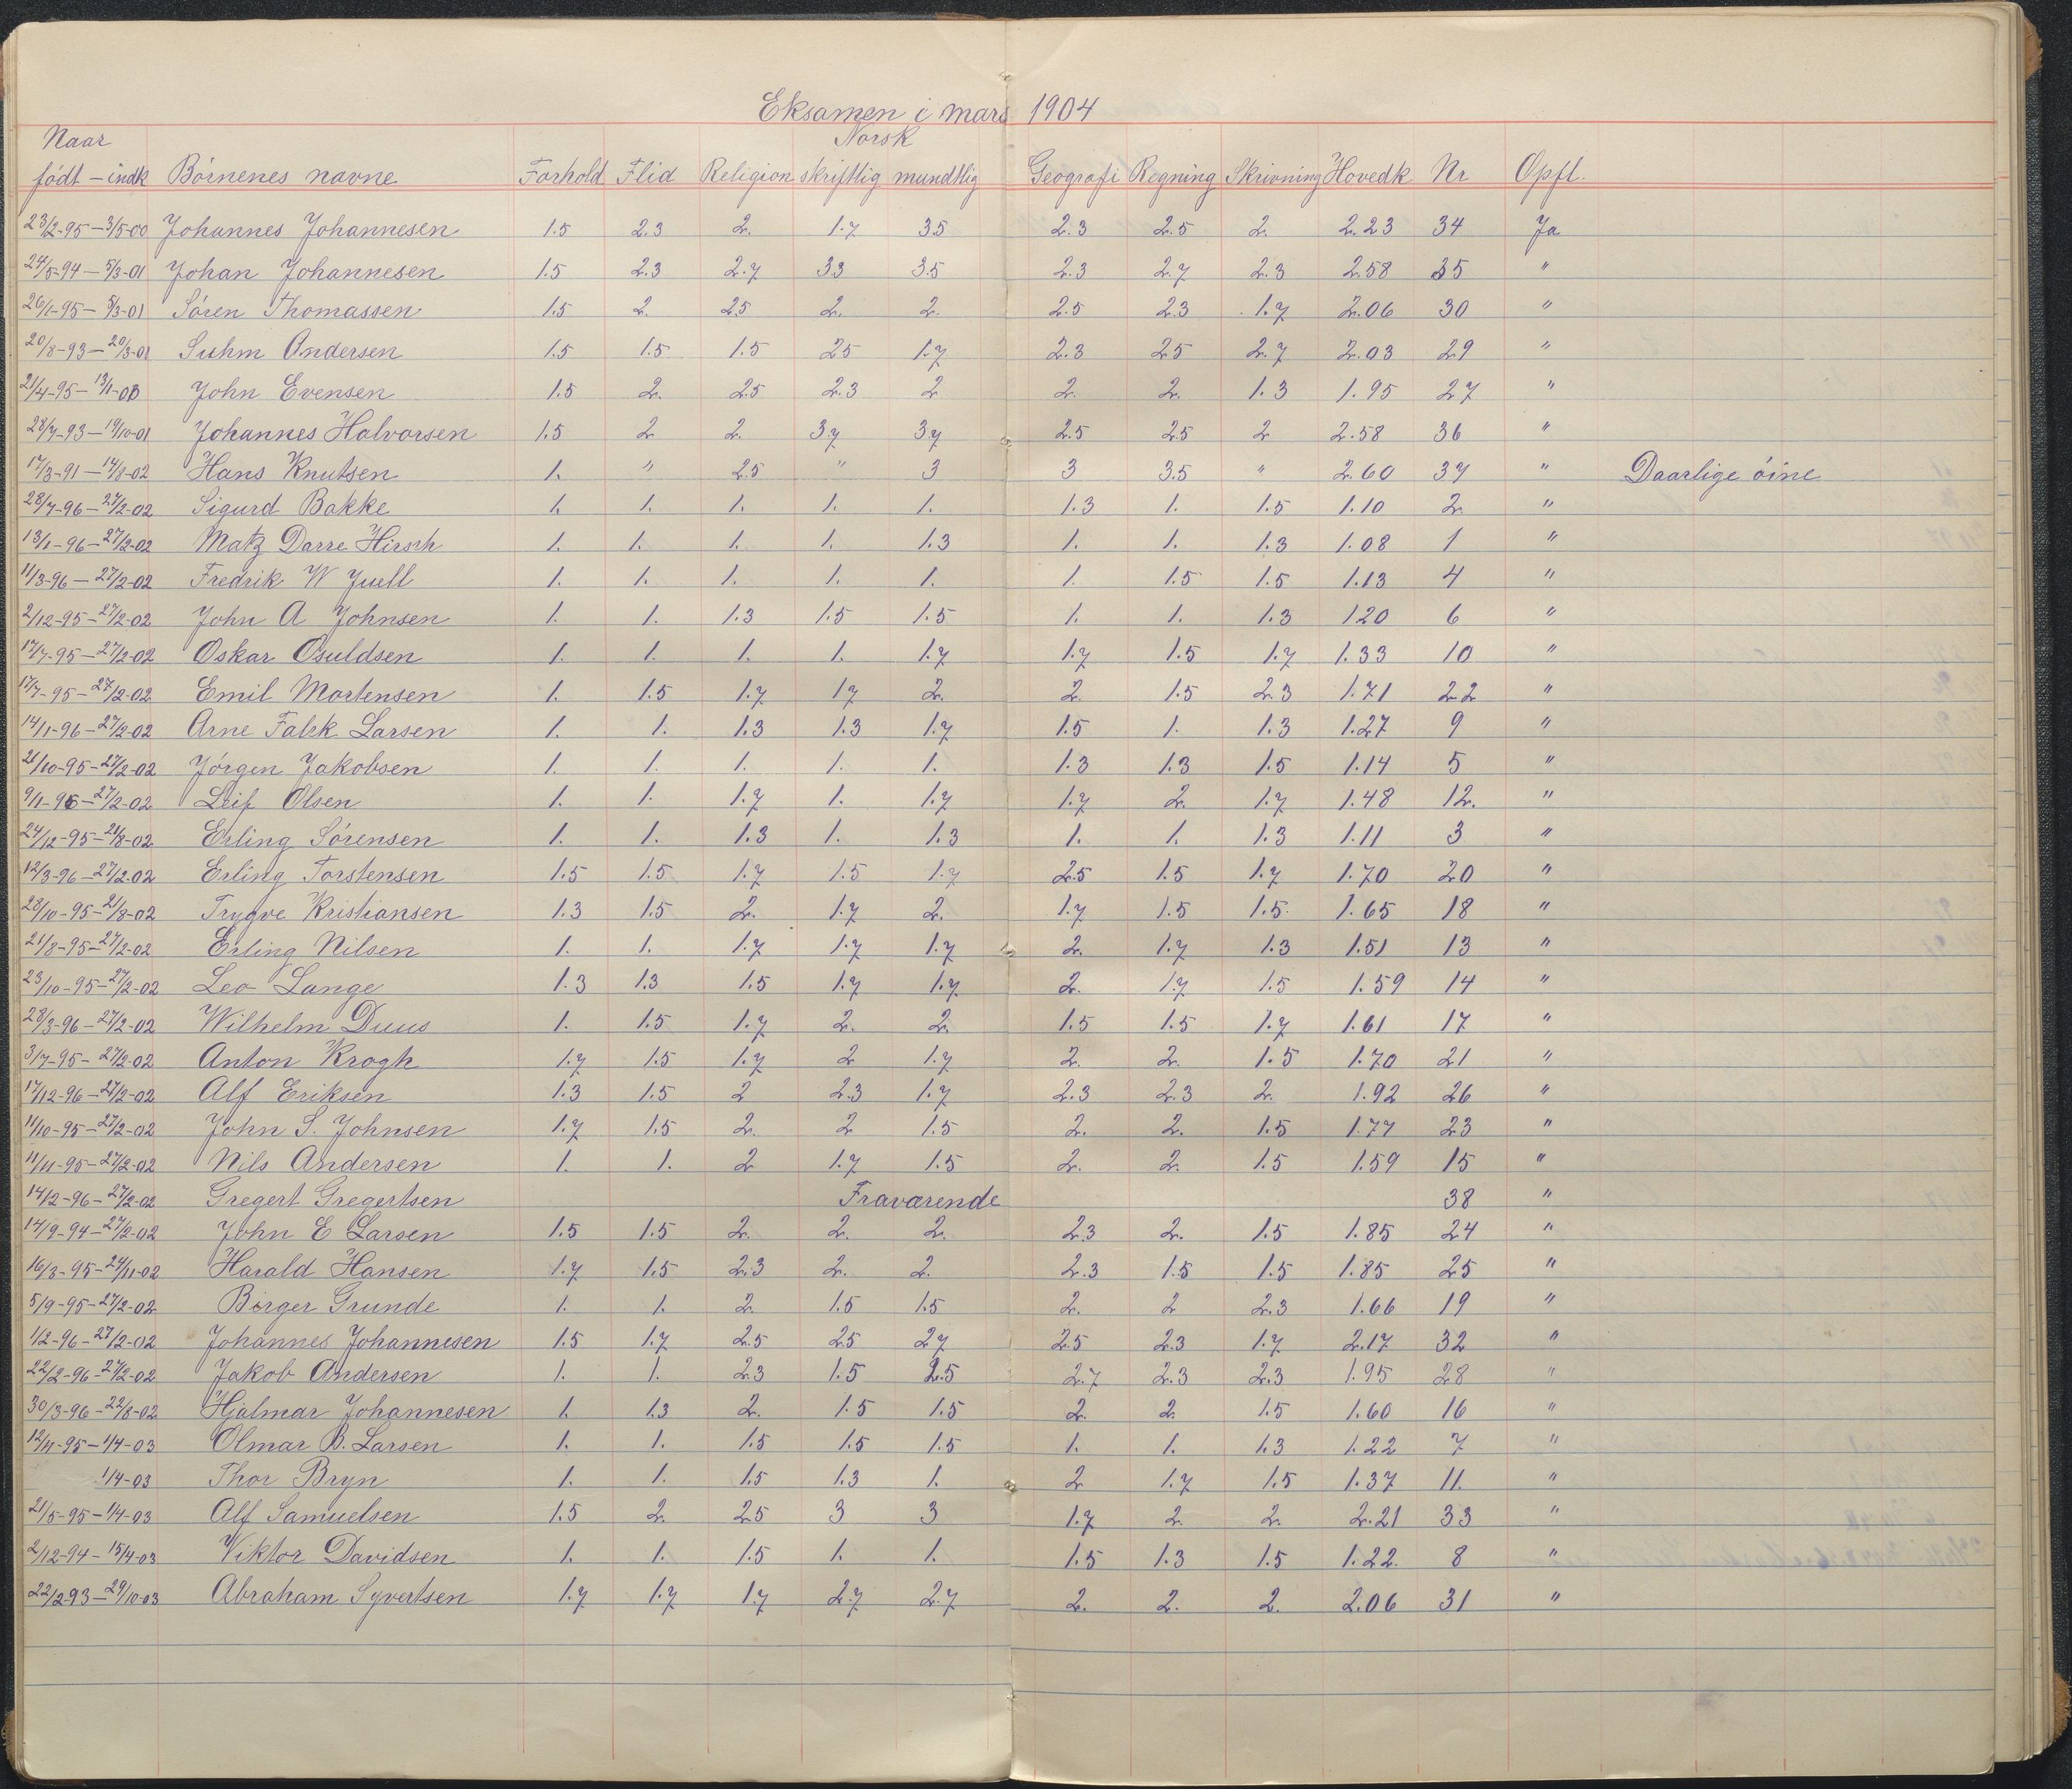 Eksamen i mars 1904
Naar Norsk
født – indk Børnenes navne Forhold Flid Religion skriftlig mundtlig Geografi Regning Skrivning Hovedk Nr Opfl.
23/2-95 – 3/5-00 Johannes Johannesen 1.5 2.3 2. 1.7 3.5 2.3 2.5 2. 2.23 34 Ja
24/5-94 – 5/3-01 Johan Johannesen 1.5 2.3 2.7 3.3 3.5 2.3 2.7 2.3 2.58 35 "
26/1-95 – 5/3-01 Søren Thomassen 1.5 2. 2.5 2. 2. 2.5 2.3 1.7 2.06 30 "
20/8-93 – 20/3-01 Suhm Andersen 1.5 1.5 1.5 2.5 1.7 2.3 2.5 2.7 2.03 29 "
21/4-95 – 13/1-00 John Evensen 1.5 2. 2.5 2.3 2 2. 2. 1.3 1.95 27 "
28/7-93 – 19/10-01 Johannes Halvorsen 1.5 2 2. 3.7 3.7 2.5 2.5 2 2.58 36 "
17/3-91 – 14/8-02 Hans Knutsen 1. " 2.5 " 3 3 3.5 " 2.60 37 " Daarlige øine
28/7-96 – 27/2-02 Sigurd Bakke 1. 1. 1. 1. 1. 1.3 1. 1.5 1.10 2. "
13/1-96 – 27/2-02 Matz Darre Hirsch 1. 1. 1. 1. 1.3 1. 1. 1.3 1.08 1 "
11/3-96 – 27/2-02 Fredrik W Juell 1. 1. 1. 1. 1. 1. 1.5 1.5 1.13 4 "
2/12-95 – 27/2-02 John A Johnsen 1. 1. 1.3 1.5 1.5 1. 1. 1.3 1.20 6 "
17/7-95 – 27/2-02 Oskar Osuldsen 1. 1. 1. 1. 1.7 1.7 1.5 1.7 1.33 10 "
17/7-95 – 27/2-02 Emil Mortensen 1. 1.5 1.7 1.7 2. 2. 1.5 2.3 1.71 22 "
14/1-96 – 27/2-02 Arne Falck Larsen 1. 1. 1.3 1.3 1.7 1.5 1. 1.3 1.27 9 "
21/10-95 – 27/2-02 Jørgen Jakobsen 1. 1. 1. 1. 1. 1.3 1.3 1.5 1.14 5 "
9/1-96 – 27/2-02 Leif Olsen 1. 1. 1.7 1. 1.7 1.7 2. 1.7 1.48 12. "
24/12-95 – 21/8-02 Erling Sørensen 1. 1. 1.3 1. 1.3 1. 1. 1.3 1.11 3 "
12/3-96 – 27/2-02 Erling Torstensen 1.5 1.5 1.7 1.5 1.7 2.5 1.5 1.7 1.70 20 "
28/10-95 – 21/8-02 Trygve Kristiansen 1.3 1.5 2. 1.7 2. 1.7 1.5 1.5 1.65 18 "
21/8-95 – 27/2-02 Erling Nilsen 1. 1. 1.7 1.7 1.7 2. 1.7 1.3 1.51 13 "
23/10-95 – 27/2-02 Leo Lange 1.3 1.3 1.5 1.7 1.7 2. 1.7 1.5 1.59 14 "
28/3-96 – 27/2-02 Wilhelm Duus 1. 1.5 1.7 2. 2. 1.5 1.5 1.7 1.61 17 "
3/7-95 – 27/2-02 Anton Krogh 1.7 1.5 1.7 2 1.7 2. 2. 1.5 1.70 21 "
17/12-96 – 27/2-02 Alf Eriksen 1.3 1.5 2 2.3 1.7 2.3 2.3 2. 1.92 26 "
11/10-95 – 27/2-02 John S. Johnsen 1.7 1.5 2. 2 1.5 2. 2. 1.5 1.77 23 "
11/11-95 – 27/2-02 Nils Andersen 1. 1. 2 1.7 1.5 2. 2. 1.5 1.59 15 "
14/2-96 – 27/2-02 Gregert Gregertsen Fraværende 38 "
14/9-94 – 27/2-02 John E Larsen 1.5 1.5 2. 2. 2. 2.3 2. 1.5 1.85 24 "
16/3-95 – 24/11-02 Harald Hansen 1.7 1.5 2.3 2. 2. 2.3 1.5 1.5 1.85 25 "
5/9-95 – 27/2-02 Birger Grunde 1. 1. 2. 1.5 1.5 2. 2 2.3 1.66 19 "
1/2-96 – 27/2-02 Johannes Johannesen 1.5 1.7 2.5 2.5 2.7 2.5 2.3 1.7 2.17 32 "
22/2-96 – 27/2-02 Jakob Andersen 1. 1. 2.3 1.5 2.5 2.7 2.3 2.3 1.95 28 "
30/3-96 – 22/8-02 Hjalmar Johannesen 1. 1.3 2. 1.5 1.5 2. 2. 1.5 1.60 16 "
12/11-95 – 1/4-03 Olmar B. Larsen 1. 1. 1.5 1.5 1.5 1. 1. 1.3 1.22 7 "
1/4-03 Thor Bryn 1. 1. 1.5 1.3 1. 2 1.7 1.5 1.37 11. "
21/5-95 – 1/4-03 Alf Samuelsen 1.5 2. 2.5 3 3 1.7 2. 2. 2.21 33 "
2/12-94 – 15/4-03 Viktor Davidsen 1. 1. 1.5 1. 1. 1.5 1.3 1.5 1.22. 8 "
22/2-93 – 29/10-03 Abraham Syvertsen 1.7 1.7 1.7 2.7 2.7 2. 2. 2. 2.06 31 "